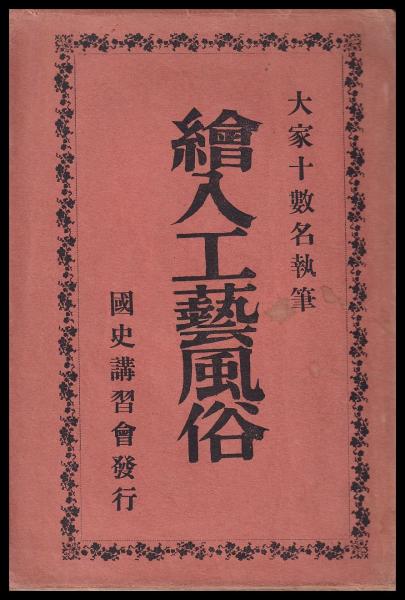 大家十數名執筆
繪入工藝風俗
國史講習會發行